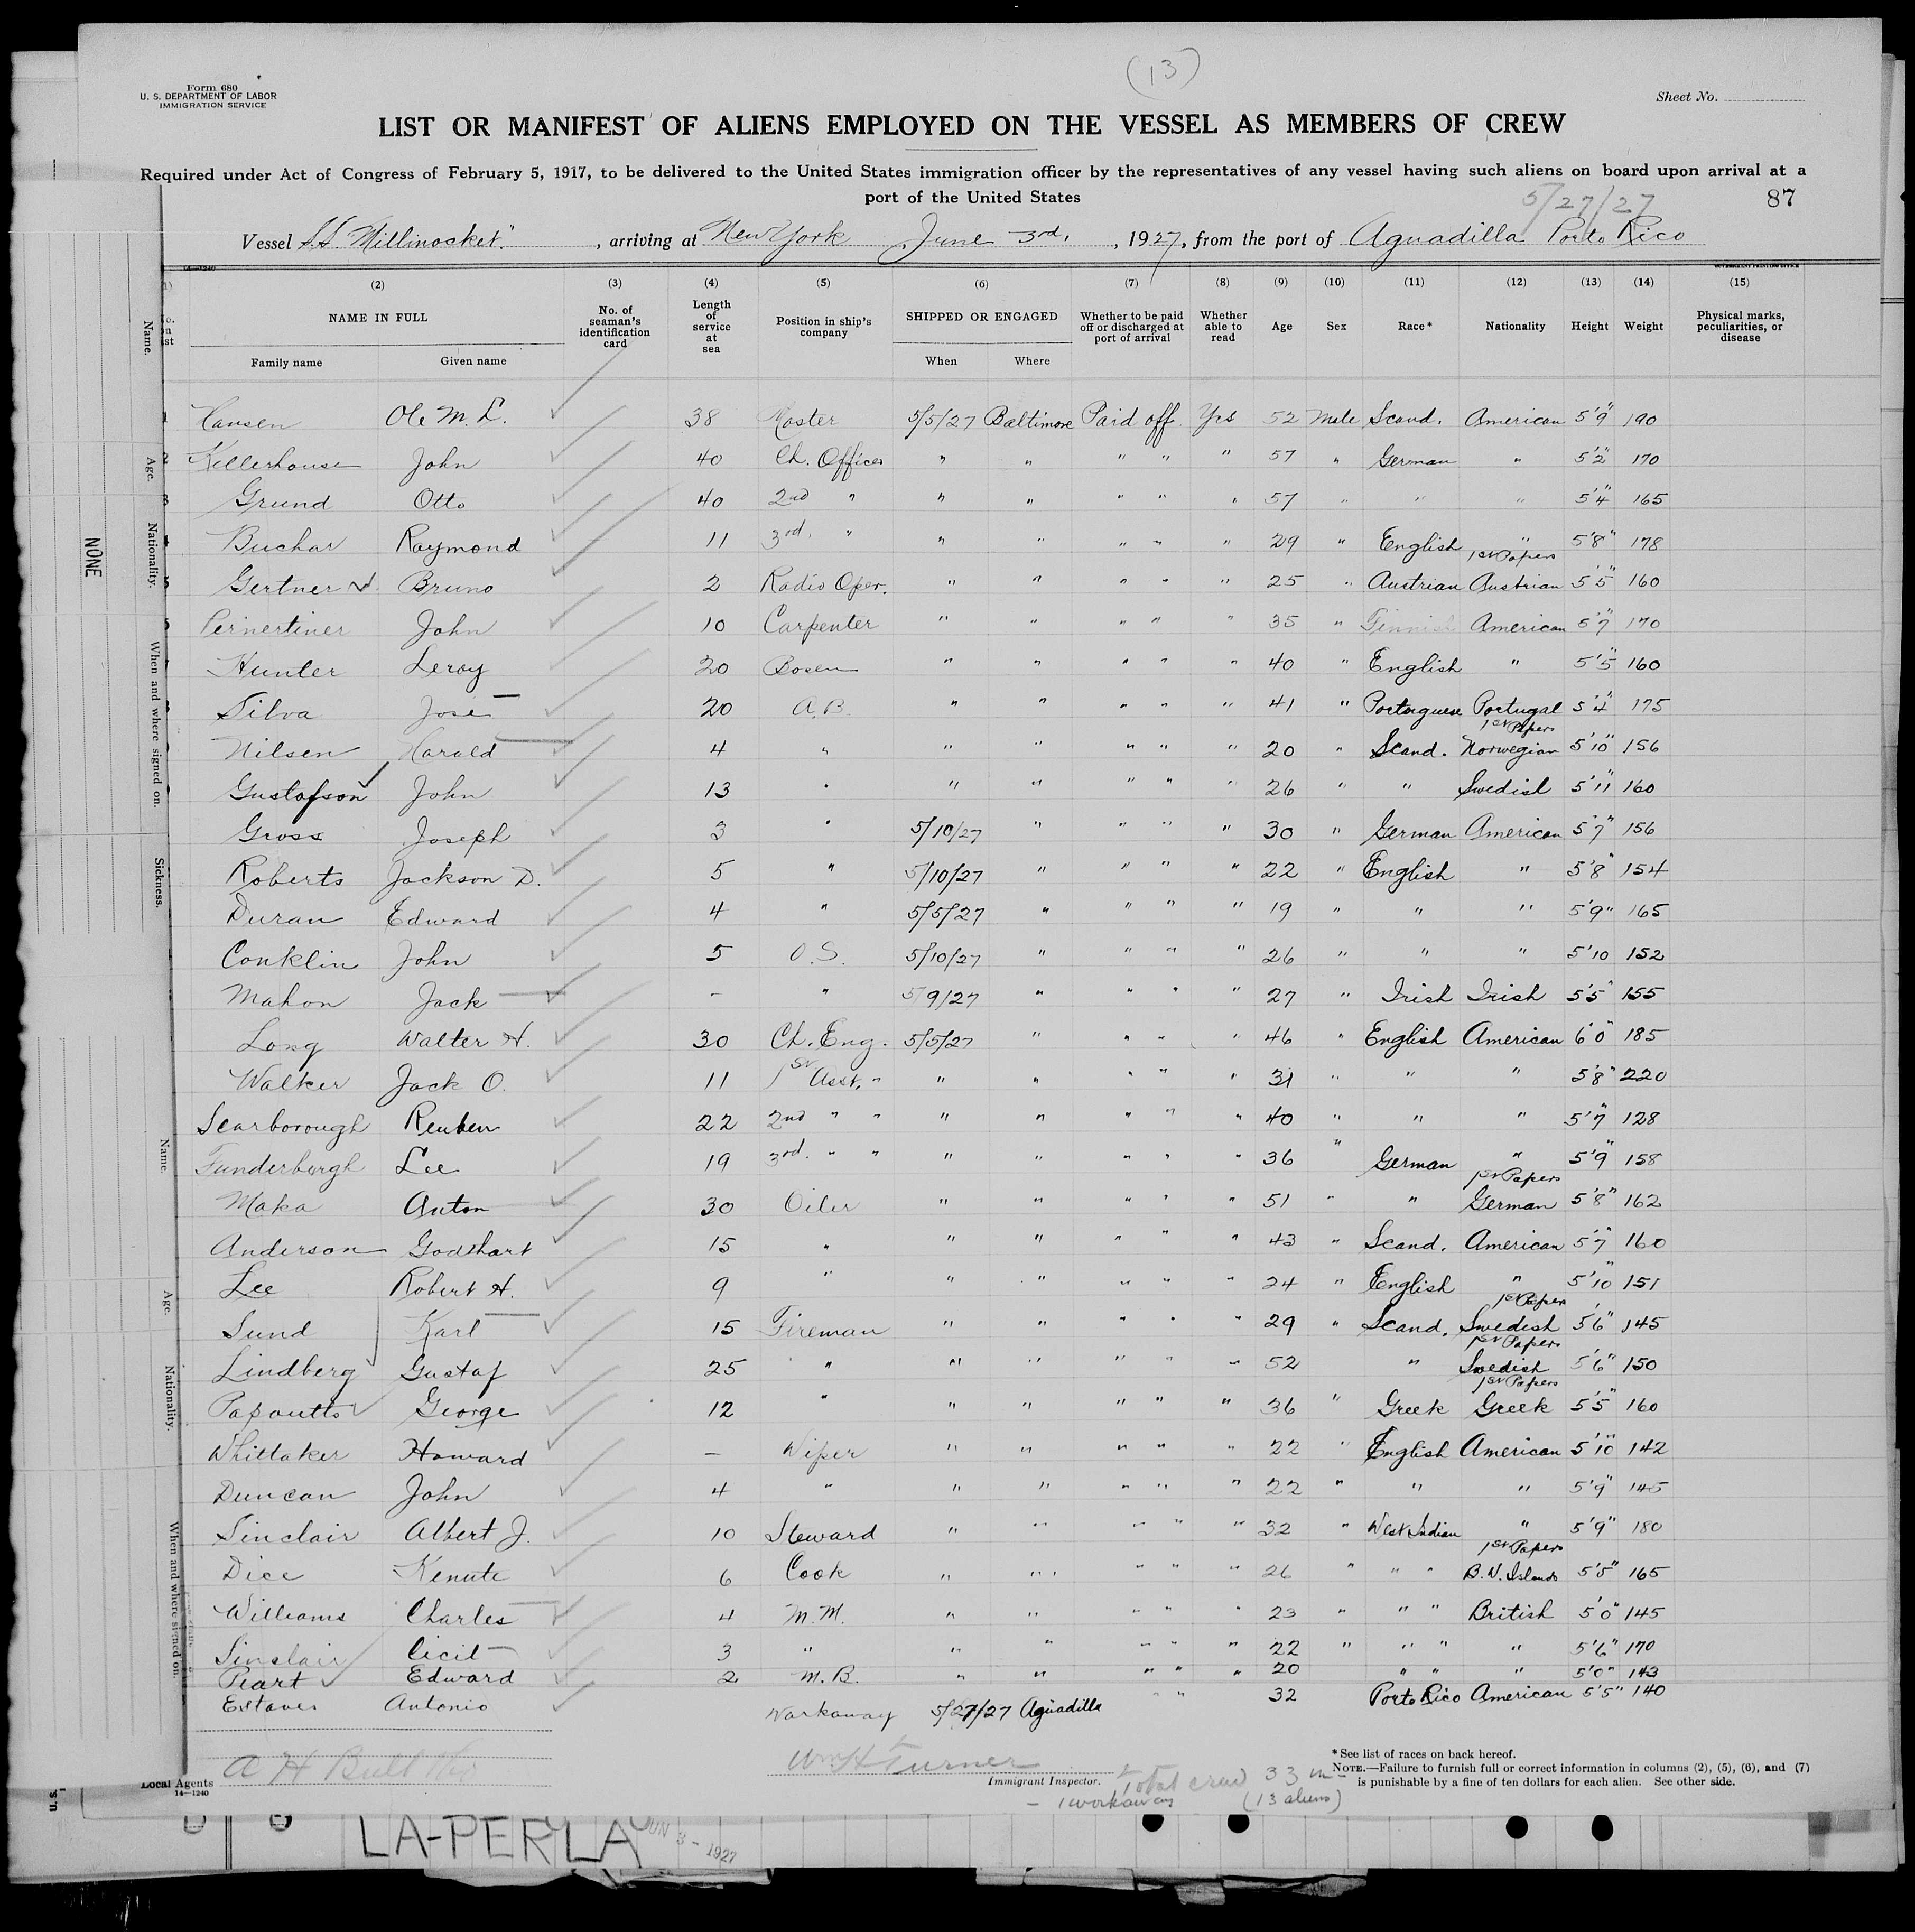 (13)
Form 680
U. S. DEPARTMENT OF LABOR
IMMIGRATION SERVICE
Sheet No.
LIST OR MANIFEST OF ALIENS EMPLOYED ON THE VESSEL AS MEMBERS OF CREW
Required under Act of Congress of February 5, 1917, to be delivered to the United States immigration officer by the representatives of any vessel having such aliens on board upon arrival at a
port of the United States
5/27/27
87
Vessel S.S. "Millinocket", arriving at New York June 3rd, 1927, from the port of Aguadilla Porto Rico
14—1240
GOVERNMENT PRINTING OFFICE
(2) (3) (4) (5) (6) (7) (8) (9) (10) (11) (12) (13) (14) (15)
NAME IN FULL No. of seaman's identification card Length of service at sea Position in ship's company SHIPPED OR ENGAGED Whether to be paid off or discharged at port of arrival Whether able to read Age Sex Race* Nationality Height Weight Physical marks, peculiarities, or disease
Family name Given name When Where
Hansen Ole M. L. 38 Master 5/5/27 Baltimore Paid off Yes 52 Male Scand. American 5'9" 190
Kellerhouse John 40 Ch. Officer " " " " " 57 " German " 5'2" 170
Grund Otto 40 2nd " " " " " " 57 " " " 5'4" 165
Buchar Raymond 11 3rd. " " " " " " 29 " English " 5'8" 178
1st Papers
Gertner Bruno 2 Radio Oper. " " " " " 25 " Austrian Austrian 5'5" 160
Pernertiner John 10 Carpenter " " " " " 35 " Finnish American 5'7" 170
Hunter Leroy 20 Bosen " " " " " 40 " English " 5'5" 160
Silva Jose 20 A.B. " " " " " 41 " Portuguese Portugal 5'4" 175
1st Papers
Nilsen Harald 4 " " " " " " 20 " Scand. Norwegian 5'10" 156
Gustafson John 13 " " " " " " 26 " " Swedish 5'11" 160
Gross Joseph 3 " 5/10/27 " " " " 30 " German American 5'7" 156
Roberts Jackson D. 5 " 5/10/27 " " " " 22 " English " 5'8" 154
Duran Edward 4 " 5/5/27 " " " " 19 " " " 5'9" 165
Conklin John 5 O.S. 5/10/27 " " " " 26 " " " 5'10 152
Mahon Jack - " 5/9/27 " " " " 27 " Irish Irish 5'5" 155
Long Walter H. 30 Ch. Eng. 5/5/27 " " " " 46 " English American 6'0" 185
Walker Jack O. 11 1st Asst. " " " " " " 31 " " " 5'8" 220
Scarborough Reuben 22 2nd " " " " " " " 40 " " " 5'7" 128
Funderburgh Lee 19 3rd. " " " " " " " 36 " German " 5'9" 158
1st Papers
Maka Anton 30 Oiler " " " " " 51 " " German 5'8" 162
Anderson Godthart 15 " " " " " " 43 " Scand. American 5'7" 160
Lee Robert H. 9 " " " " " " 24 " English " 5'10" 151
1st Papers
Sund Karl 15 Fireman " " " " " 29 " Scand. Swedish 5'6" 145
1st Papers
Lindberg Gustaf 25 " " " " " " 52 " Swedish 5'6" 150
1st Papers
Papoutts George 12 " " " " " " 36 " Greek Greek 5'5" 160
Whittaker Howard - Wiper " " " " " 22 " English American 5'10" 142
Duncan John 4 " " " " " " 22 " " " 5'9" 145
Sinclair Albert J. 10 Steward " " " " " 32 " West Indian " 5'9" 180
1st Papers
Dice Kenute 6 Cook " " " " " 26 " " " B.W. Islands 5'5" 165
Williams Charles 4 M.M. " " " " " 23 " " " British 5'0" 145
Sinclair Cicil 3 " " " " " " 22 " " " " 5'6" 170
Peart Edward 2 M.B. " " " " " 20 " " " 5'0" 143
Estaves Antonio Workaway 5/27/27 Aguadilla " " 32 Porto Rico American 5'5" 140
A H Bull
Local Agents
14—1240
Wm H Turner
Immigrant Inspector.
Total crew 33 in
- 1 workaway (13 aliens)
*See list of races on back hereof.
NOTE.—Failure to furnish full or correct information in columns (2), (5), (6), and (7)
is punishable by a fine of ten dollars for each alien. See other side.
Name.
Age.
Nationality.
When and where signed on.
Sickness.
NONE
Name.
Age.
Nationality.
When and where signed on.
U. S.
LA-PERLA
JUN 3 - 1927